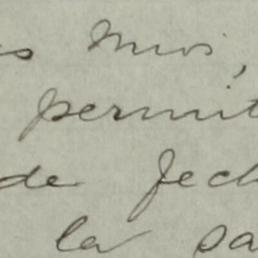 os mios,
permit
de fech
la sa